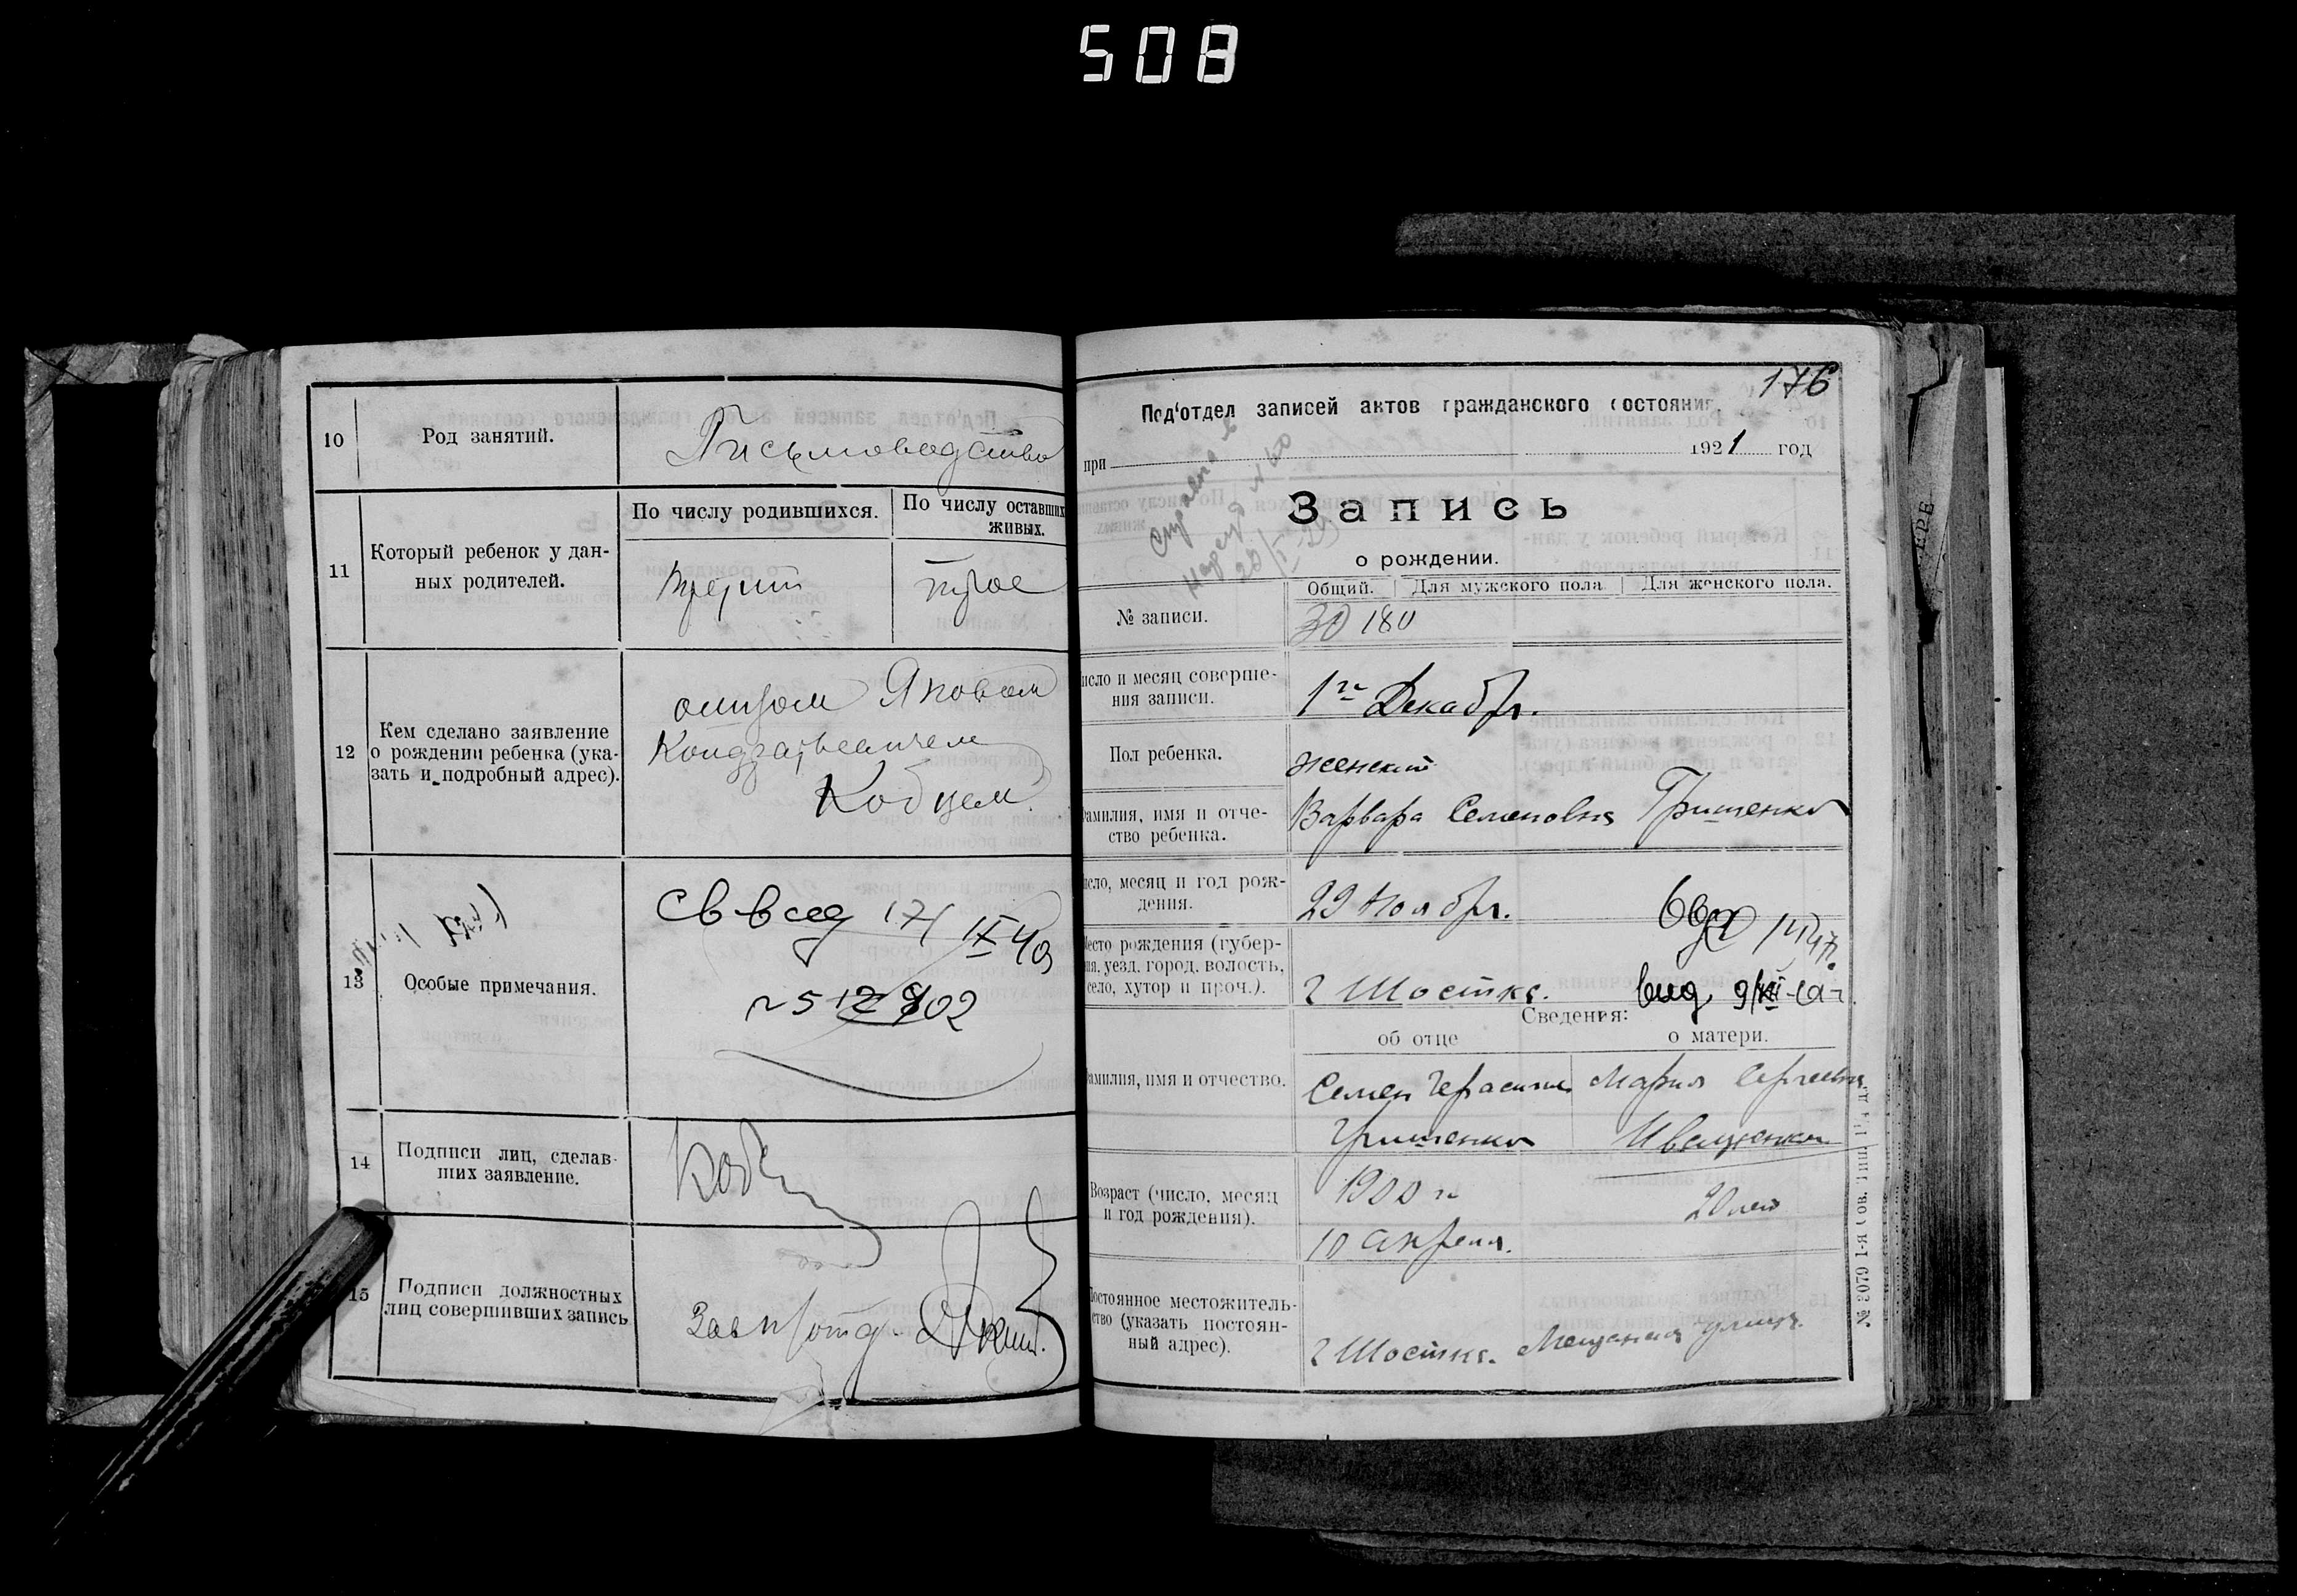 508
10
Род занятий.
Письмоводство
11
Который ребенок у дан-
ных родителей.
По числу родившихся.
По числу оставших
живых.
третий
трое
12
Кем сделано заявление
о рождении ребенка (ука-
зать и подробный адрес).
отцом Яковом
Кондратьевичем
Кобцем.
13
Особые примечания.
Св-в
17/IX 49
14
Подписи лиц, сделав-
ших заявление.
15
Подписи должностных
лиц совершивших запись
176
Под'отдел записей актов гражданского состояния,
при
1921 год
Запись
о рождении.
№ записи.
Общий.
Для мужского пола
Для женского пола.
30 180
исло и месяц соверше-
ния записи.
1го Декабр.
Пол ребенка.
женский
амилия, имя и отче-
ство ребенка.
Варвара Семеновна Гришенко
исло, месяц и год рож-
дения.
29 Ноябр.
есто рождения (губер-
ия, уезд. город. волость,
село, хутор и проч.).
г Шостка.
Сведения:
об отце
о матери.
амилия, имя и отчество.
Семен Герасим
Гришенко
Мария Сергеевна
Иващенко
Возраст (число, месяц
и год рождения).
1900 г
10 апреля.
20 лет
Постоянное местожитель-
ство (указать постоян-
ный адрес).
г Шостка. Мещанская улица.
№ 3079 1-я Сов. Тип.